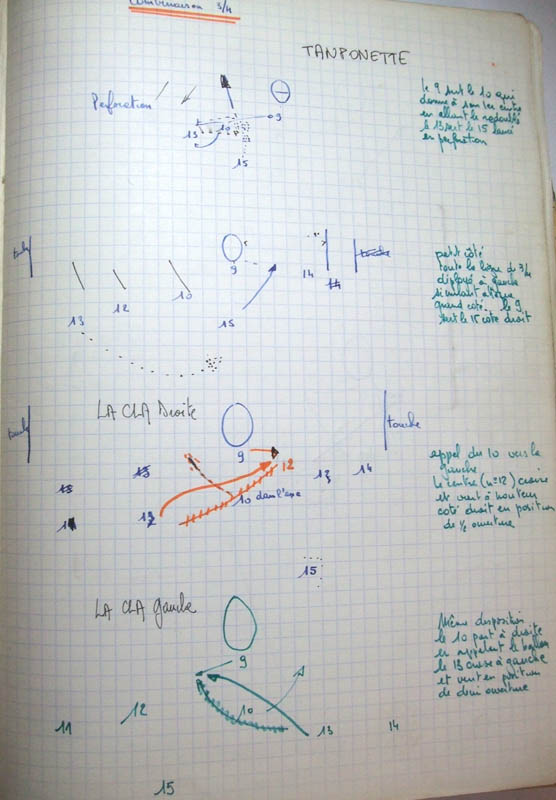 Combinaison 3/4
TANPONETTE
Perforation
9
13
10
15
le 9 sert le 10 qui
donne à son 1er centre
en allant le redoubler
le 13 sert le 15 lancé
en perforation
touche
9
14
touche
14
13
12
10
15
petit côté
toute la ligne de 3/4
déployé à gauche
simulant attaque
grand coté. le 9
sert le 15 coté droit
LA CLA Droite
touche
touche
9
12
13
14
13
13
10 dans l'axe
15
appel du 10 vers la
gauche
le centre (n=12) croise
et vient à hauteur
coté droit en position
de 1/2 ouverture
LA CLA Gauche
9
10
11
12
13
14
15
Même disposition
le 10 part à droite
en appelant le ballon
le 13 croise à gauche
et vient en position
de demi ouverture